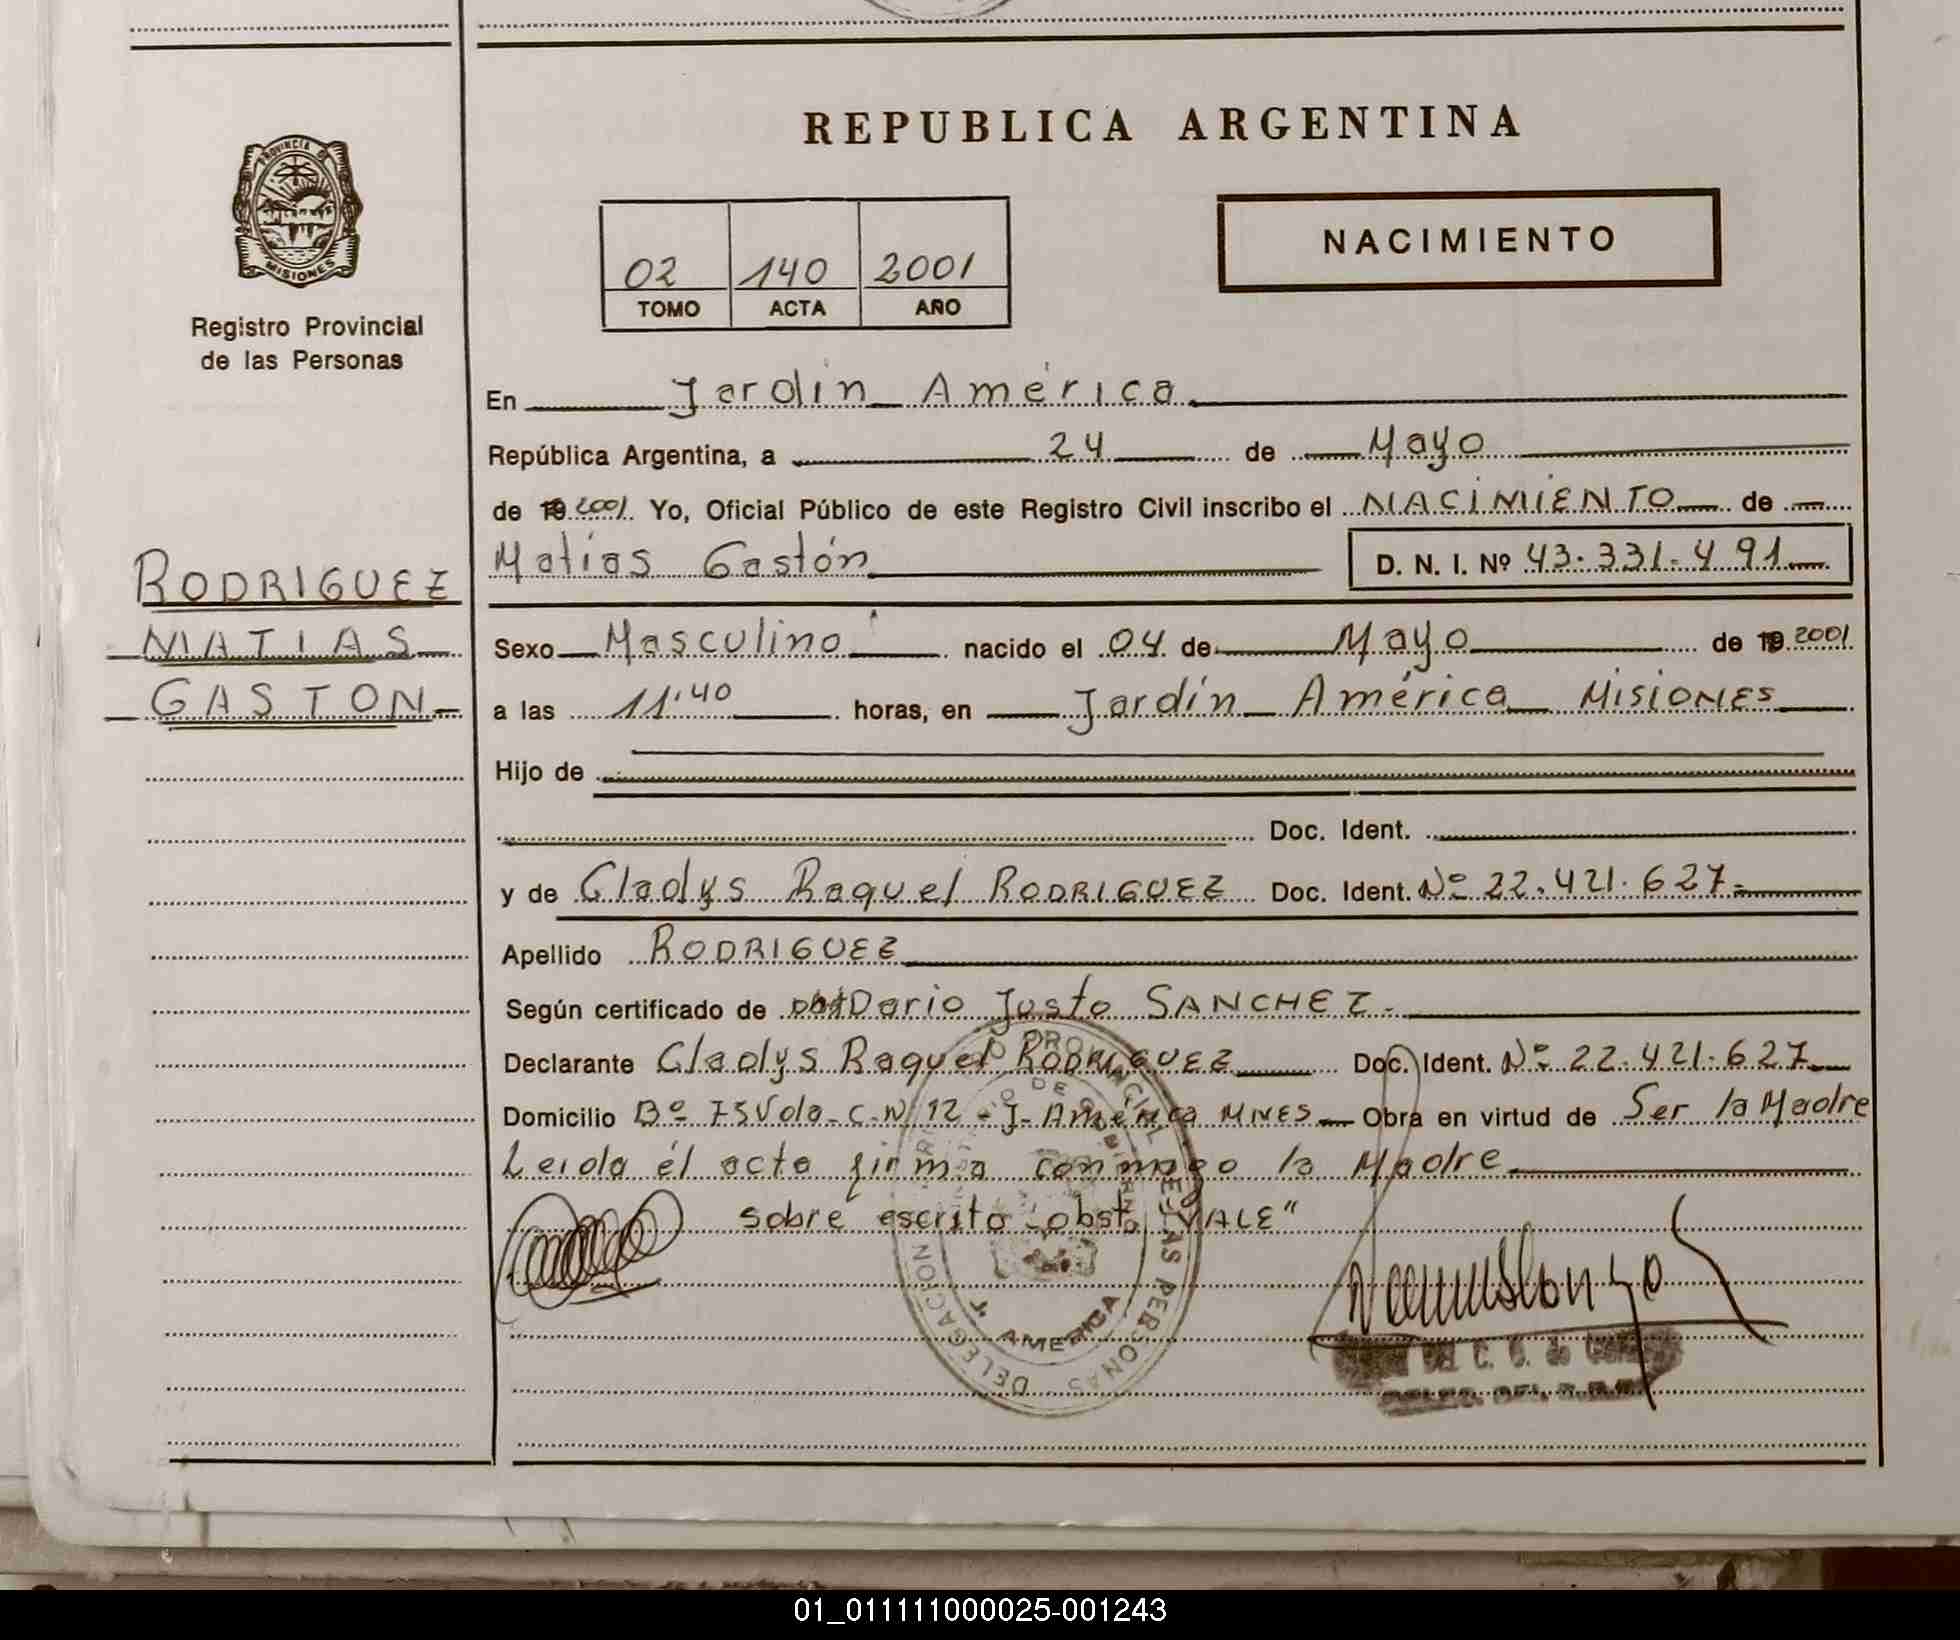 REPUBLICA ARGENTINA
PROVINCIA DE
MISIONES
Registro Provincial
de las Personas
02 140 2001
TOMO ACTA AÑO
NACIMIENTO
RODRIGUEZ
MATIAS
GASTON
En Jardín América
República Argentina, a 24 de Mayo
de 19 2001 Yo, Oficial Público de este Registro Civil inscribo el NACIMIENTO de
Matías Gastón D. N. I. Nº 43.331.491
Sexo Masculino nacido el 04 de Mayo de 19 2001
a las 11:40 horas, en Jardín América MISIONES
Hijo de
Doc. Ident.
y de Gladys Raquel RODRIGUEZ Doc. Ident. Nº 22.421.627
Apellido RODRIGUEZ
Según certificado de obst Dario Justo SANCHEZ.
Declarante Gladys Raquel RODRIGUEZ Doc. Ident. Nº 22.421.627
Domicilio Bº 75 Vda - C.Nº 12 - J. América MNES Obra en virtud de Ser la Madre
Leida él acta firma conmigo la Madre
sobre escrito obst. "VALE"
J. AMERICA
DELEGACION
LAS PERSONAS
01_011111000025-001243